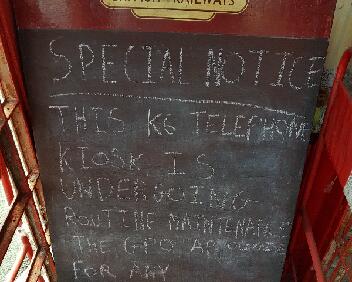 BRITISH RAILWAYS
SPECIAL NOTICE
THIS K6 TELEPHONE
KIOSK IS
UNDERGOING
ROUTINE MAINTENANCE
THE GPO APOLOGISE
FOR ANY